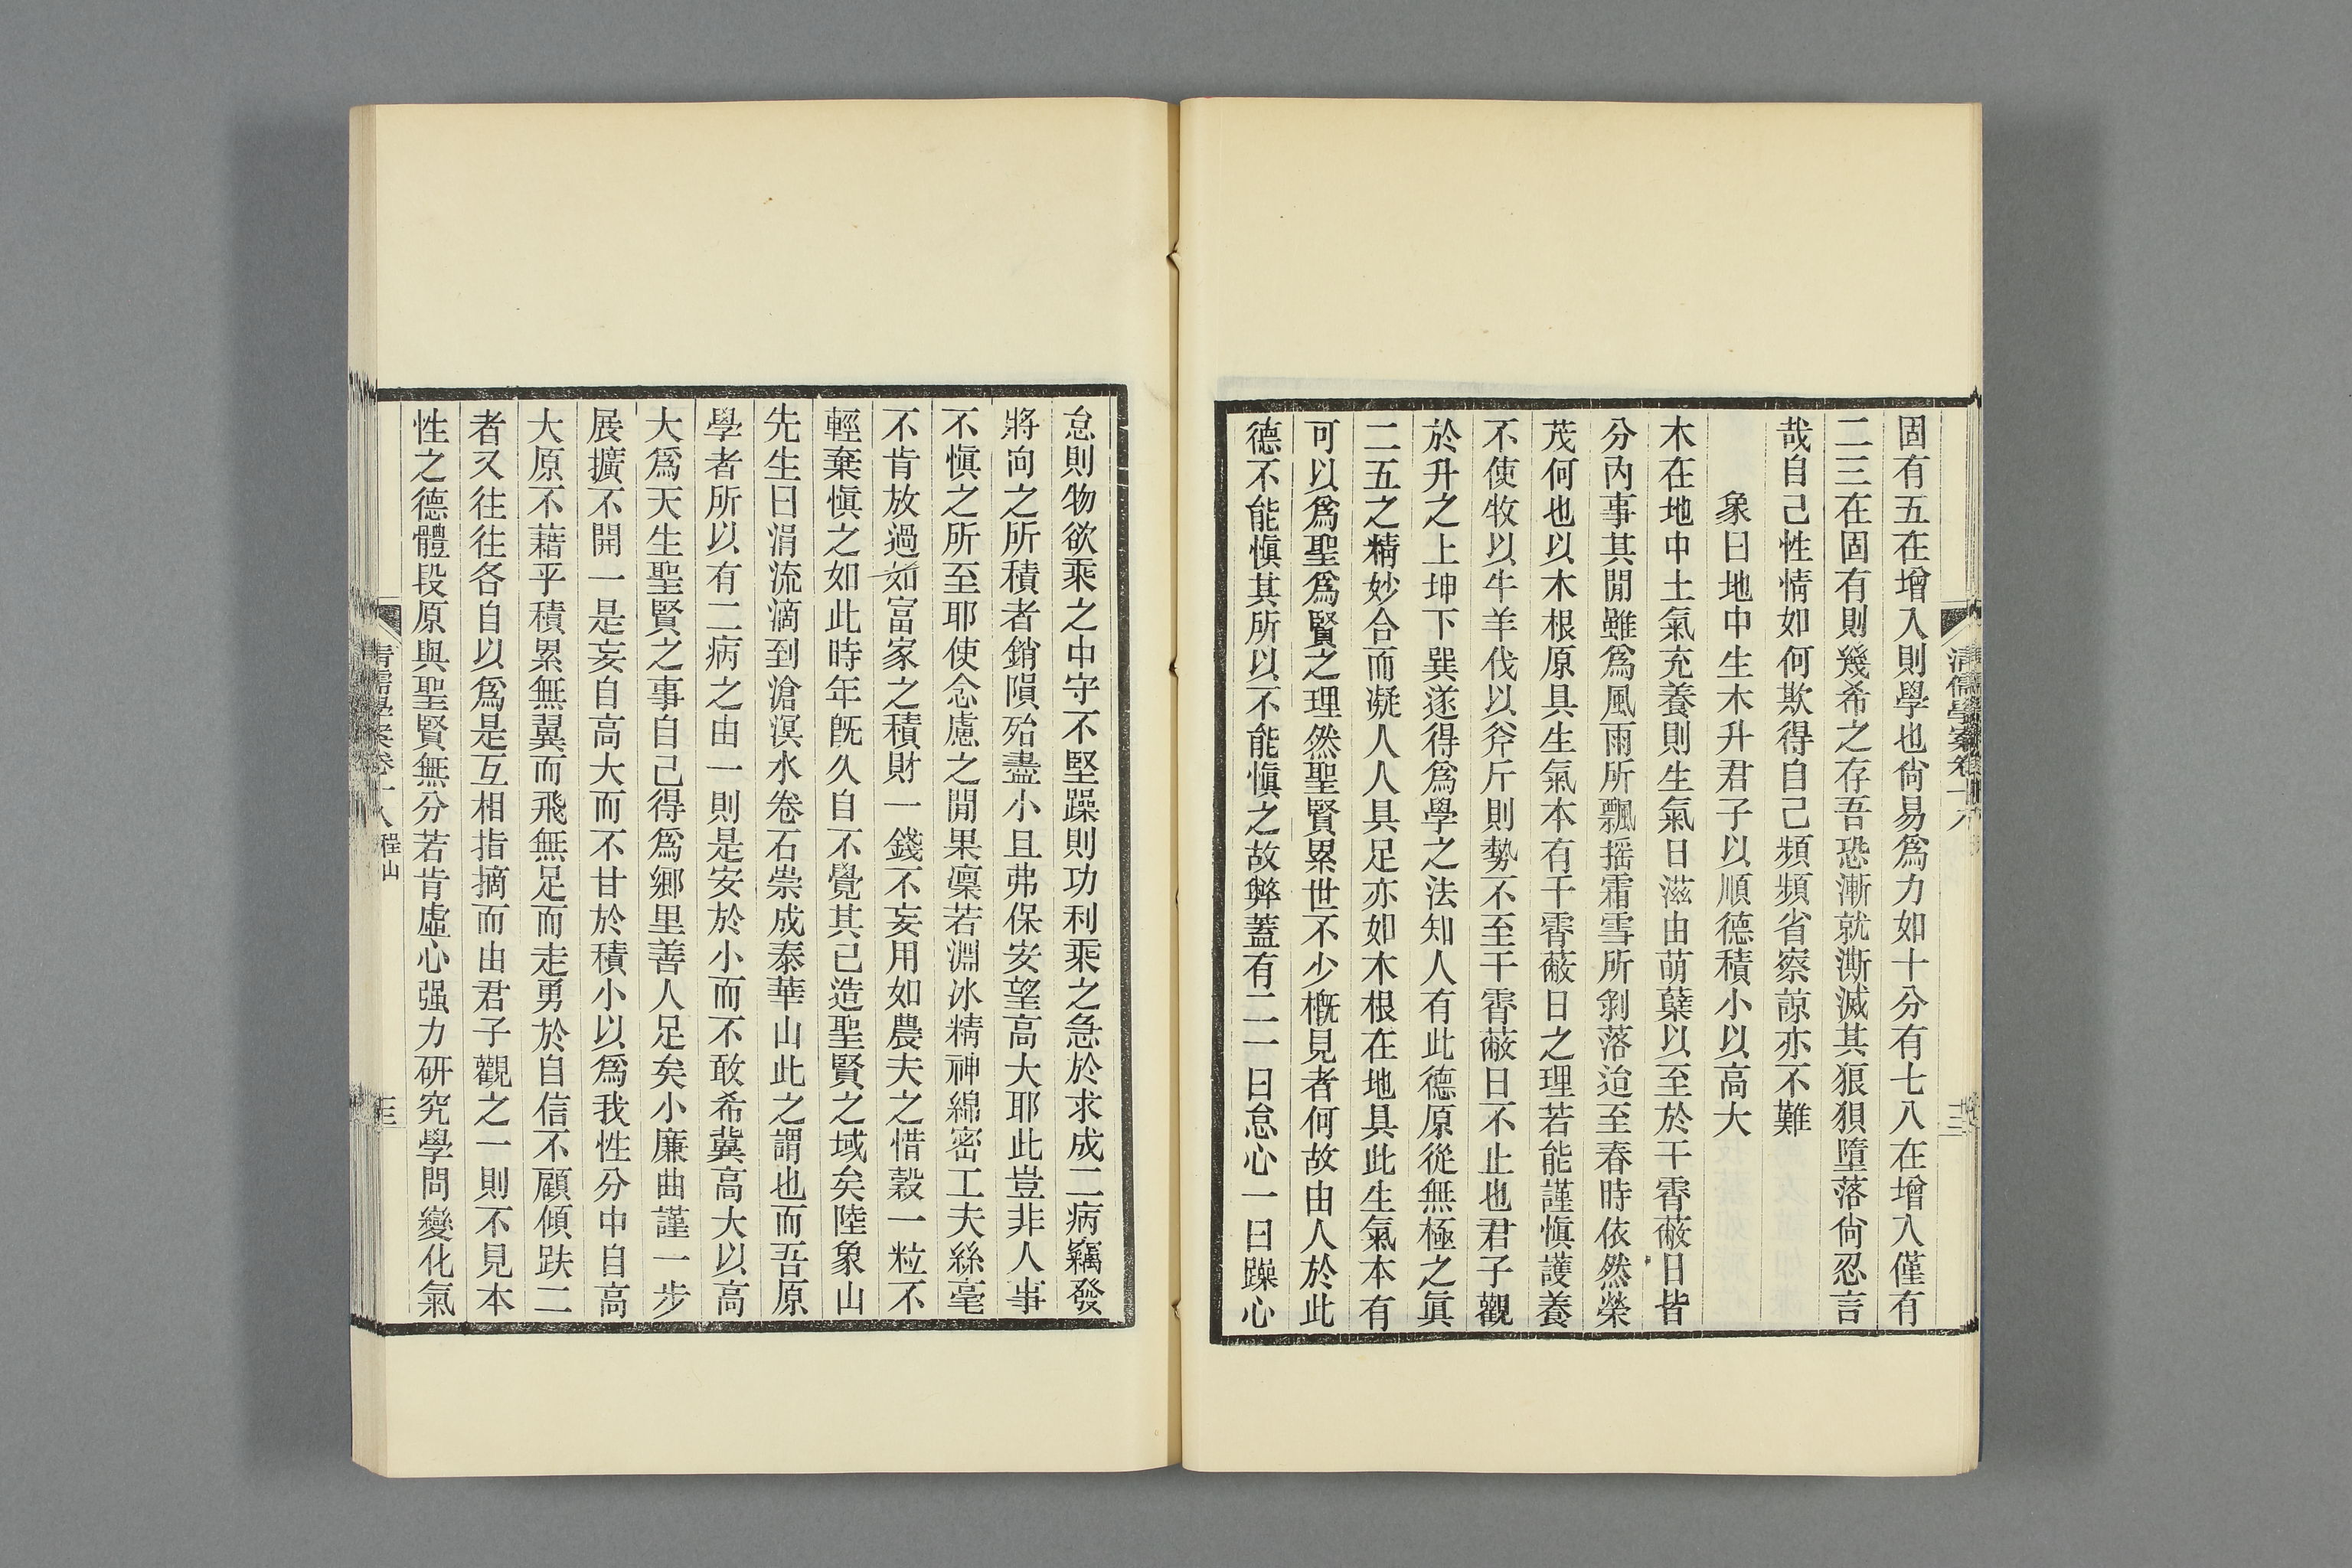 固有五在增入則學也尙易爲力如十分有七八在增入僅有
二三在固有則幾希之存吾恐漸就澌滅其狼狽墮落尙忍言
哉自己性情如何欺得自己頻頻省察諒亦不難
象曰地中生木升君子以順德積小以高大
木在地中土氣充養則生氣日滋由萌蘖以至於干霄蔽日皆
分內事其閒雖爲風雨所飄搖霜雪所剝落迨至春時依然榮
茂何也以木根原具生氣本有干霄蔽日之理若能謹愼護養
不使牧以牛羊伐以斧斤則勢不至干霄蔽日不止也君子觀
於升之上坤下巽遂得爲學之法知人有此德原從無極之眞
二五之精妙合而凝人人具足亦如木根在地具此生氣本有
可以爲聖爲賢之理然聖賢累世不少槪見者何故由人於此
德不能愼其所以不能愼之故弊蓋有二一曰怠心一曰躁心
怠則物欲乘之中守不堅躁則功利乘之急於求成二病竊發
將向之所積者銷隕殆盡小且弗保安望高大耶此豈非人事
不愼之所至耶使念慮之閒果凜若淵冰精神綿密工夫絲毫
不肯放過如富家之積財一錢不妄用如農夫之惜穀一粒不
輕棄愼之如此時年旣久自不覺其已造聖賢之域矣陸象山
先生曰涓流滴到滄溟水卷石崇成泰華山此之謂也而吾原
學者所以有二病之由一則是安於小而不敢希冀高大以高
大爲天生聖賢之事自己得爲鄉里善人足矣小廉曲謹一步
展擴不開一是妄自高大而不甘於積小以爲我性分中自高
大原不藉乎積累無翼而飛無足而走勇於自信不顧傾跌二
者又往往各自以爲是互相指摘而由君子觀之一則不見本
性之德體段原與聖賢無分若肯虛心强力硏究學問變化氣
清儒學案卷十八 程山